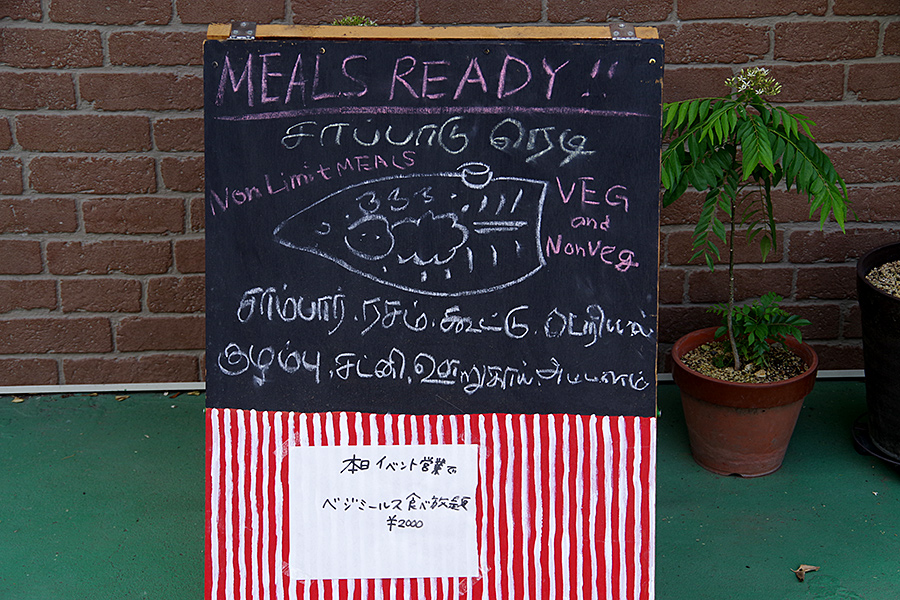 MEALS READY !!
சாப்பாடு ரெடி
Non Limit MEALS
VEG
and
NonVeg
சாம்பார். ரசம். கூட்டு. பொரியல்
குழம்பு, சட்னி, ஊறுகாய், அப்பளம்
本日 イベント営業で
ベジミールス食べ放題
¥2000